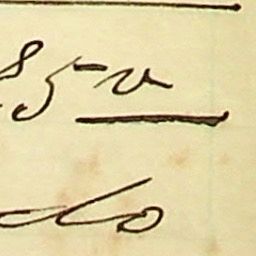 850
do